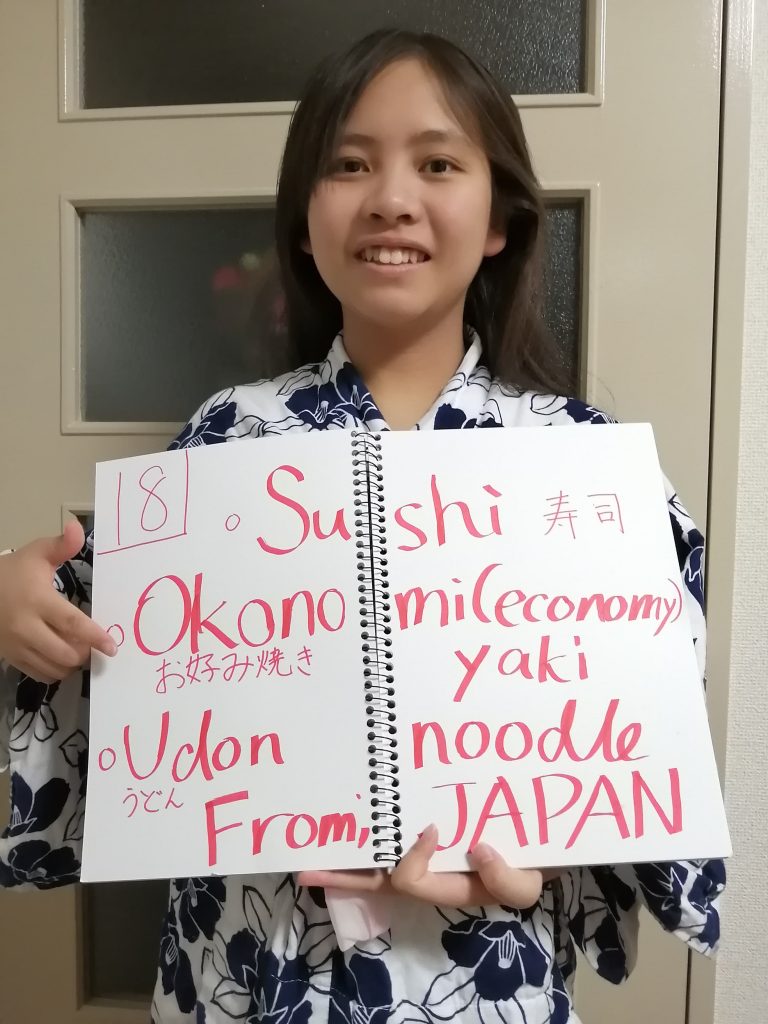 18
○ Sushi 寿司
○ Okonomi(economy)
お好み焼き yaki
○ Udon noodle
うどん
From; JAPAN